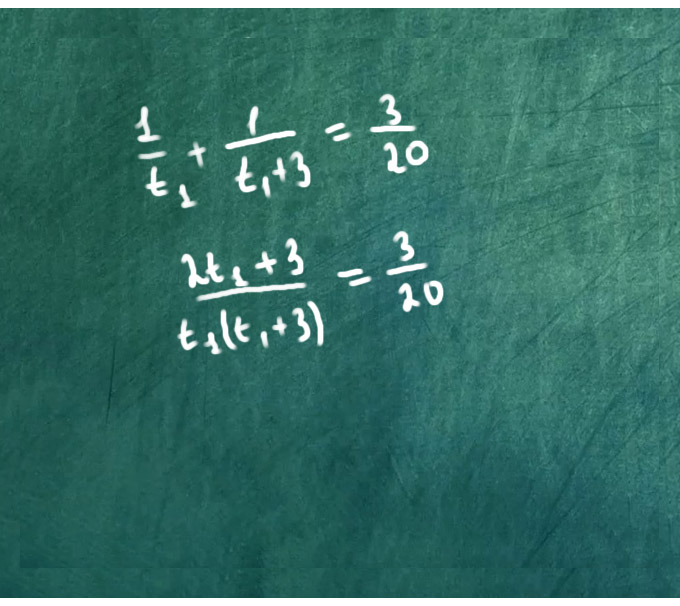 1/t₁ + 1/(t₁+3) = 3/20
(2t₁+3)/(t₁(t₁+3)) = 3/20